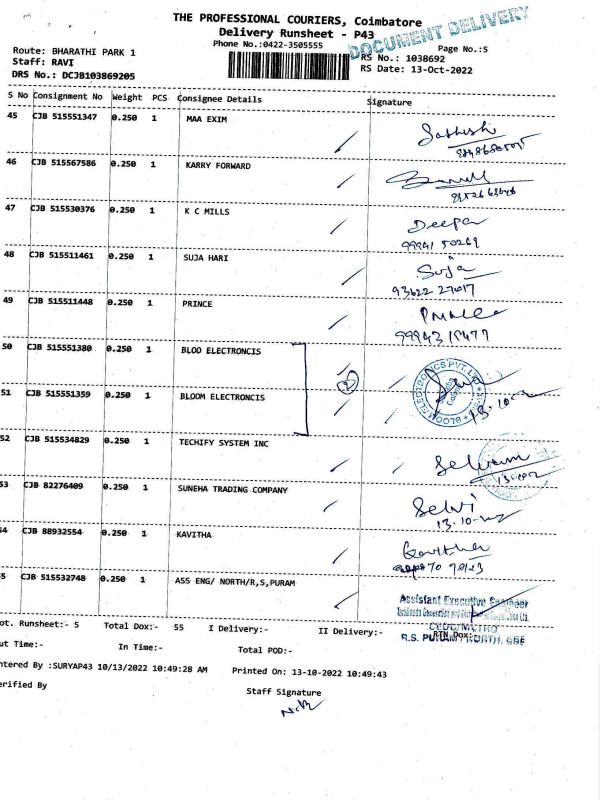 THE PROFESSIONAL COURIERS, Coimbatore
Delivery Runsheet - P43
DOCUMENT DELIVERY
Phone No.:0422-3505555
Page No.:5
Route: BHARATHI PARK 1
RS No.: 1038692
Staff: RAVI
RS Date: 13-Oct-2022
DRS No.: DCJB103869205
S No Consignment No Weight PCS Consignee Details Signature
45 CJB 515551347 0.250 1 MAA EXIM
46 CJB 515567586 0.250 1 KARRY FORWARD
47 CJB 515530376 0.250 1 K C MILLS Deepa
99941 50269
48 CJB 515511461 0.250 1 SUJA HARI Suja
93622 27017
49 CJB 515511448 0.250 1 PRINCE
50 CJB 515551380 0.250 1 BLOO ELECTRONCIS
2
51 CJB 515551359 0.250 1 BLOOM ELECTRONCIS
BLOOM ELECTRONICS PVT. LTD.
52 CJB 515534829 0.250 1 TECHIFY SYSTEM INC Selvam
53 CJB 82276409 0.250 1 SUNEHA TRADING COMPANY Selvi
54 CJB 88932554 0.250 1 KAVITHA Kavitha
55 CJB 515532748 0.250 1 ASS ENG/ NORTH/R,S,PURAM
Assistant Executive Engineer
R.S. PURAM / NORTH. CBE
ot. Runsheet:- 5 Total Dox:- 55 I Delivery:- II Delivery:- RTN Dox:-
ut Time:- In Time:- Total POD:-
ntered By :SURYAP43 10/13/2022 10:49:28 AM Printed On: 13-10-2022 10:49:43
erified By Staff Signature